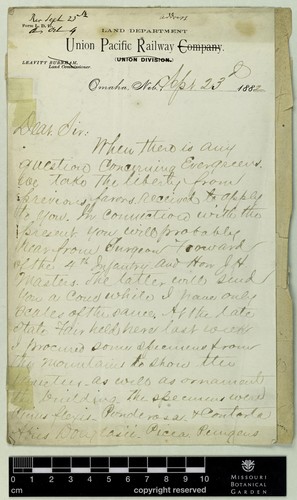 Rec Sept 25th
address
Form L. D. 2.
LAND DEPARTMENT
Union Pacific Railway Company.
(UNION DIVISION.)
LEAVITT BURNHAM,
Land Commissioner.
Omaha, Neb. Sept 23d 1882
Dear Sir:
When there is any
question concerning Evergreens
I take the liberty from
previous favors received to apply
to you. In connection with the
present you will probably
hear from Surgeon
of the 4th Infantry and Hon J H
Masters. The latter will send
you a cone while I have only
scales of the same. At the late
State Fair held here last week
I procured some specimens from
the mountains to show
as well as ornament
the building the specimens were
Pinus Ponderosa & Contorta
Abies Douglasii Picea Pungens
cm
0 1 2 3 4 5 6 7 8 9 10
copyright reserved
MISSOURI
BOTANICAL
GARDEN